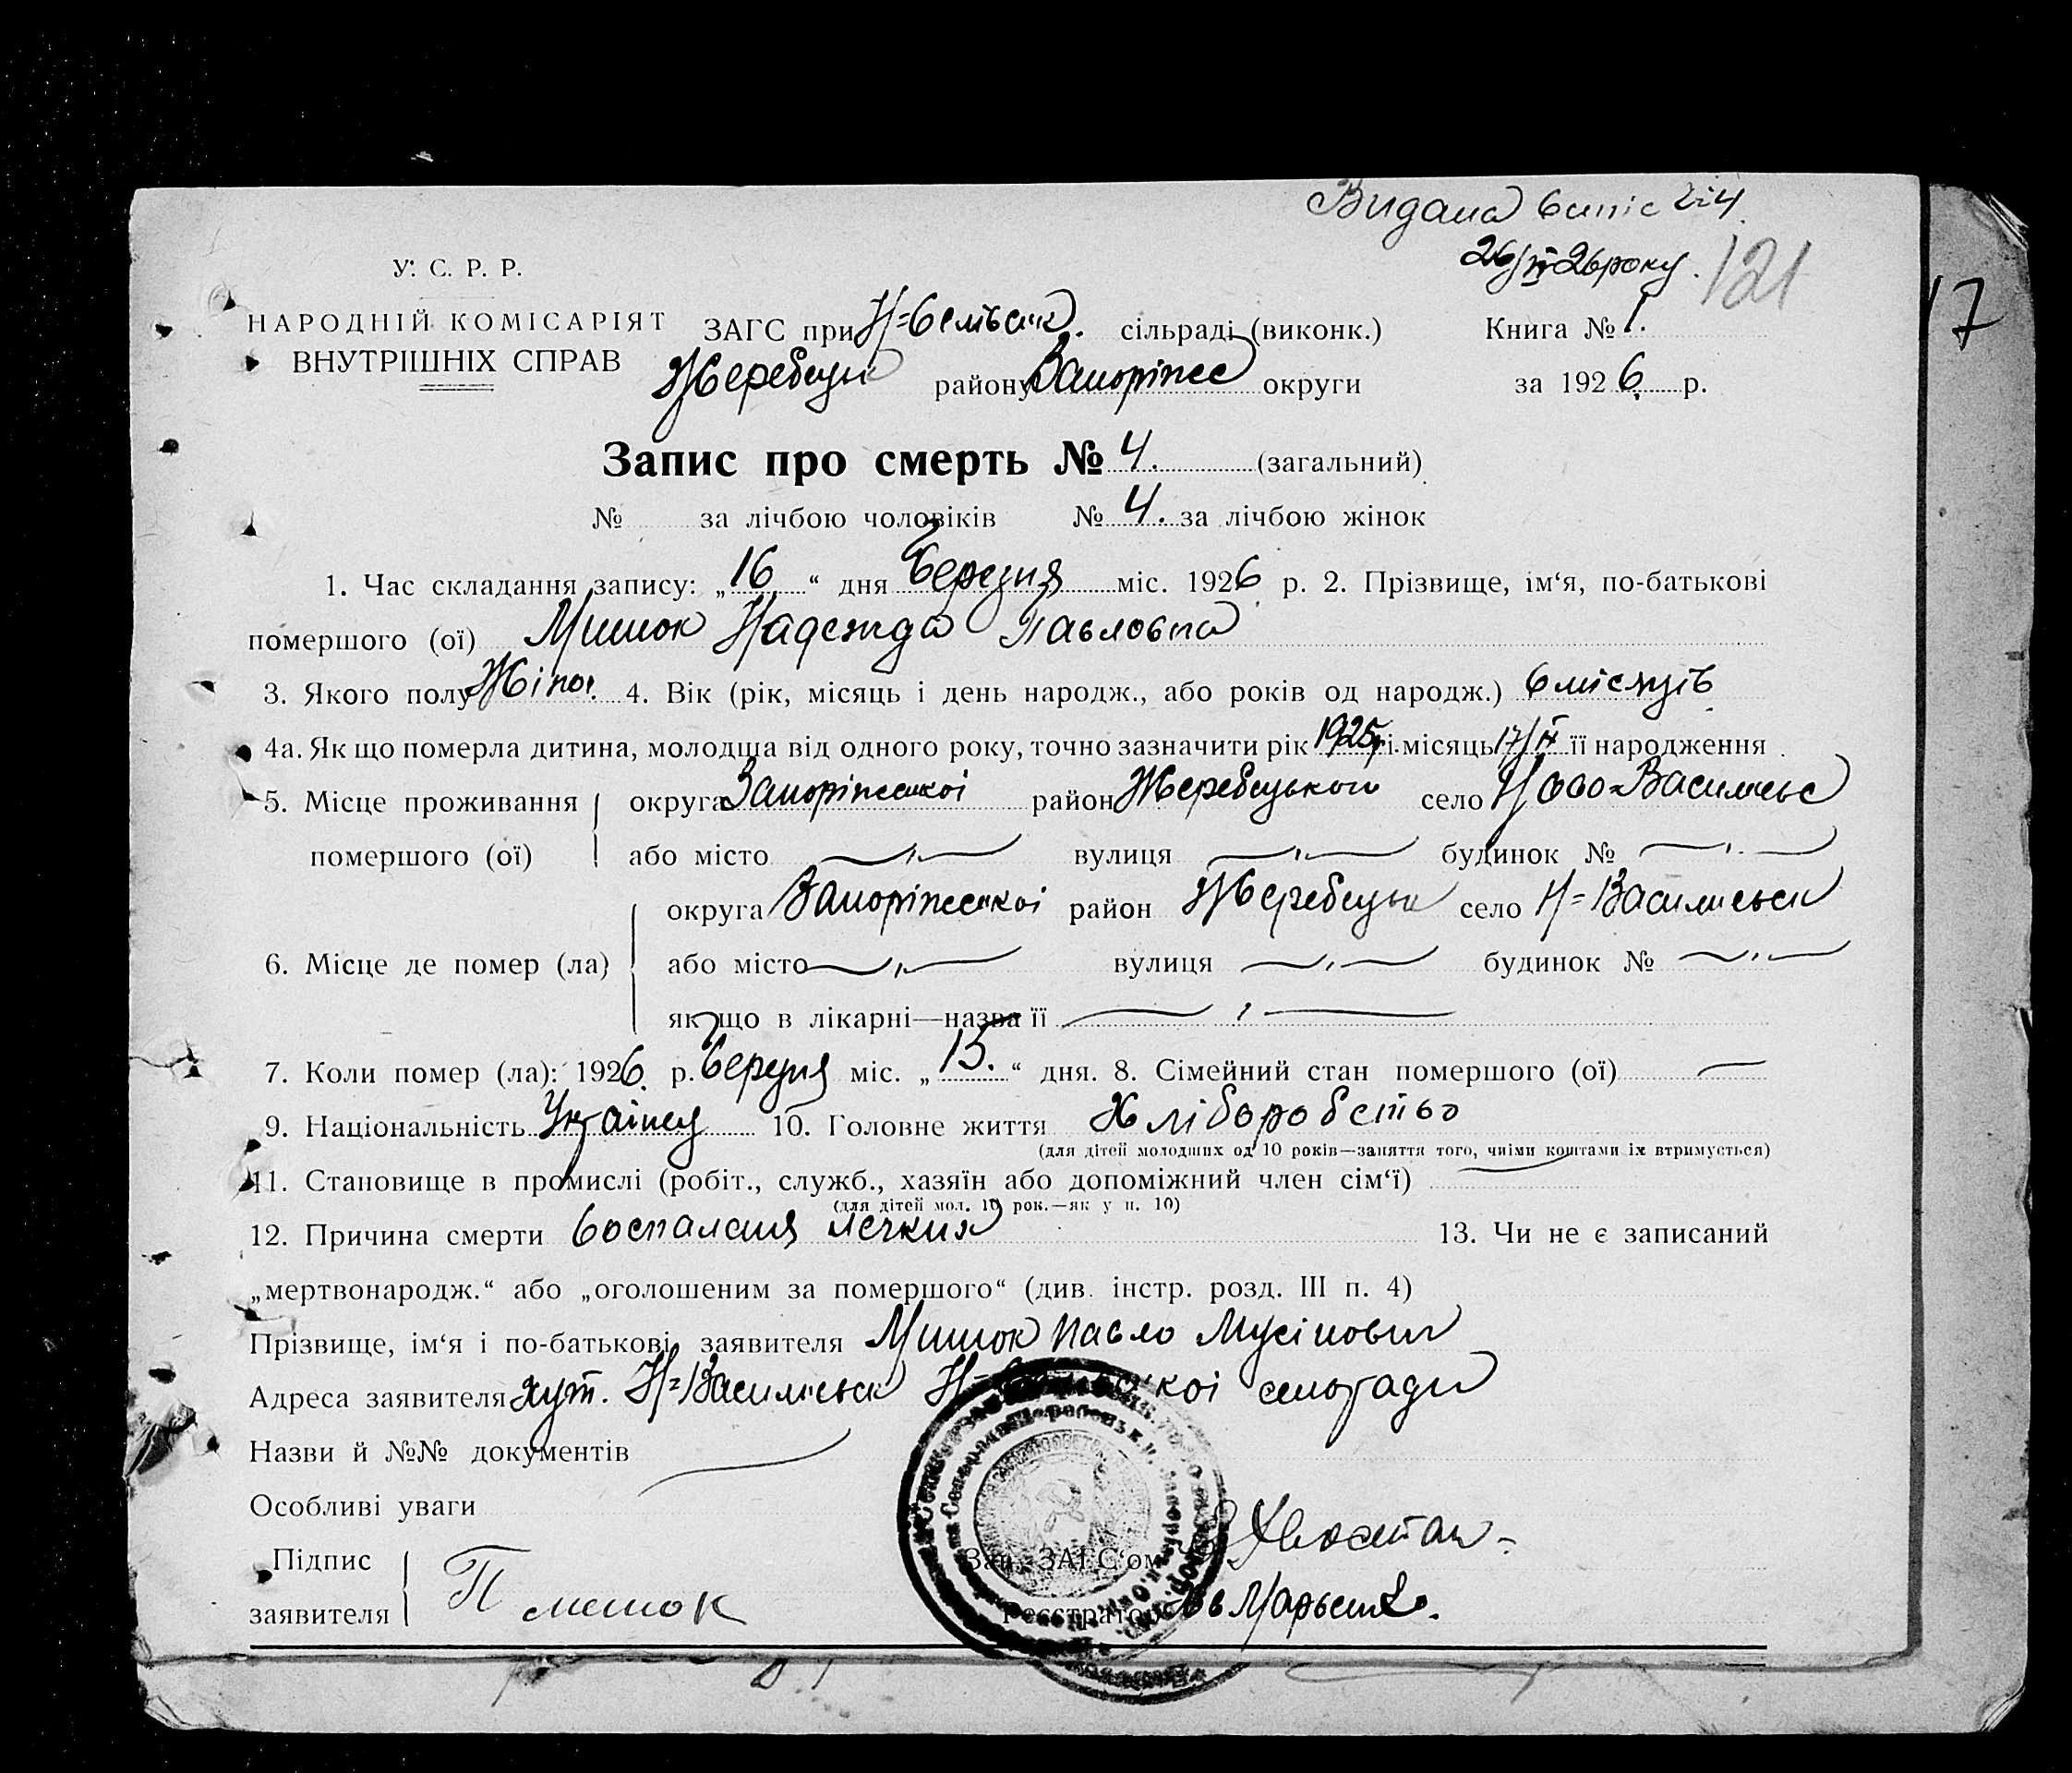 Видана
26/ 26 року. 121
У. С. Р. Р.
НАРОДНІЙ КОМІСАРІЯТ
ВНУТРІШНІХ СПРАВ
ЗАГС при сільраді (виконк.) Книга № 1.
Жеребецьк району Запоріжс округи за 1926 р.
17
Запис про смерть № 4. (загальний)
№ за лічбою чоловіків № 4. за лічбою жінок
1. Час складання запису: „16“ дня березня міс. 1926 р. 2. Прізвище, ім‘я, по-батькові
помершого (ої) Мишок Надежда Павловна
3. Якого полу Жіно. 4. Вік (рік, місяць і день народж., або років од народж.) 6 місяців
4а. Як що померла дитина, молодша від одного року, точно зазначити рік 1925 і місяць 17/ІХ її народження
5. Місце проживання округа Запоріжської район Жеребецького село Ново-Василівс
помершого (ої) або місто —„— вулиця —„— будинок № —„—
округа Запоріжської район Жеребецьк село Н=Василівськ
6. Місце де помер (ла) або місто —„— вулиця —„— будинок № —„—
як що в лікарні—назва її —„—
7. Коли помер (ла): 1926 р. березня міс. „15.“ дня. 8. Сімейний стан помершого (ої) —
9. Національність Українця 10. Головне життя Хліборобство
(для дітей молодших од 10 років—заняття того, чиїми коштами їх втримується)
11. Становище в промислі (робіт., служб., хазяїн або допоміжний член сім‘ї) —
(для дітей мол. 10 рок.—як у п. 10)
12. Причина смерти воспаления легких 13. Чи не є записаний
„мертвонародж.“ або „оголошеним за помершого“ (див. інстр. розд. III п. 4)
Прізвище, ім‘я і по-батькові заявителя Мишок Павло Мусіпович
Адреса заявителя хут. Н=Василівськ сільради
Назви й №№ документів
Особливі уваги
Підпис
заявителя П Мишок
Зав. ЗАГС‘ом
Реєстратор